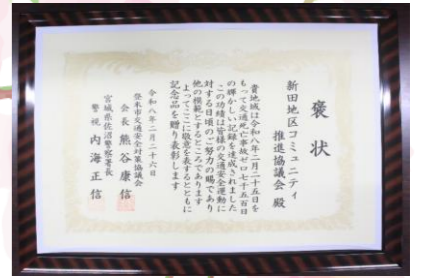 褒状
新田地区コミュニティ
推進協議会殿
貴地域は令和八年二月二十五日を
もって交通死亡事故ゼロ七千五百日
の輝かしい記録を達成されました
この功績は皆様の交通安全運動に
対する日頃のご努力の賜であり
他の模範とするところであります
よってここに敬意を表するとともに
記念品を贈り表彰します
令和八年二月二十六日
登米市交通安全対策協議会
会長 熊谷康信
宮城県佐沼警察署長
警視 内海正信